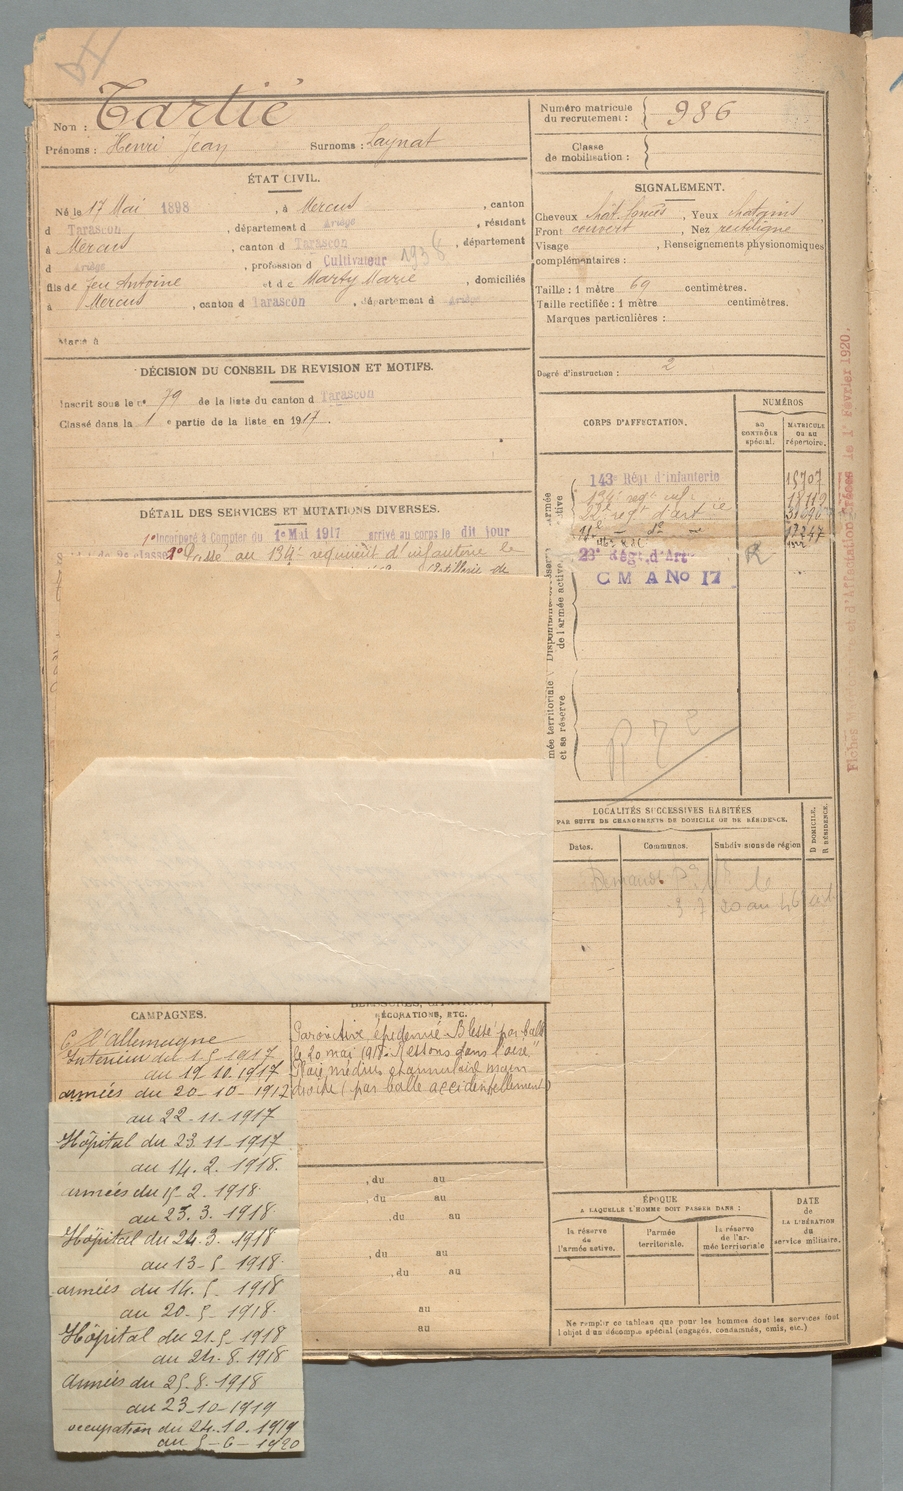 Nom : Tartié
Prénoms : Henri Jean Surnoms : Laynat
Numéro matricule du recrutement : 986
Classe de mobilisation :
ÉTAT CIVIL.
Né le 17 Mai 1898, à Mercus, canton
d Tarascon, département d Ariège, résidant
à Mercus, canton d Tarascon, département
d Ariège, profession d Cultivateur 1938
fils de feu Antoine et de Marty Marie, domiciliés
à Mercus, canton d Tarascon, département d Ariège
Marié à
SIGNALEMENT.
Cheveux chât. foncés, Yeux chatains
Front couvert, Nez rectiligne
Visage , Renseignements physionomiques
complémentaires :
Taille : 1 mètre 69 centimètres.
Taille rectifiée : 1 mètre centimètres.
Marques particulières :
Degré d'instruction : 2
DÉCISION DU CONSEIL DE REVISION ET MOTIFS.
Inscrit sous le n° 79 de la liste du canton d Tarascon
Classé dans la 1 e partie de la liste en 1917.
DÉTAIL DES SERVICES ET MUTATIONS DIVERSES.
1° Incorporé à Compter du 1er Mai 1917 arrivé au corps le dit jour
de 2e classe 2° Passé au 134e régiment d'infanterie le
Artillerie de
CORPS D'AFFECTATION.
NUMÉROS
AU CONTRÔLE spécial.
MATRICULE OU AU répertoire.
143e Régt d'infanterie 15707
134e regt inf.
23e Régt. d'Art
C M A No 17
R
de l'armée active.
mée territoriale
et sa réserve
R 7 2
Fiches
et d'Affectation
le 1r Février 1920.
LOCALITÉS SUCCESSIVES HABITÉES
PAR SUITE DE CHANGEMENTS DE DOMICILE OU DE RÉSIDENCE.
Dates. Communes. Subdivisions de région
D DOMICILE.
R RÉSIDENCE.
CAMPAGNES.
C. l'allemagne
Intérieur du 1-5-1917
au 19.10.1917
armées du 20-10-1917
au 22-11-1917
Hôpital du 23.11-1917
au 14.2.1918.
armées du 15-2.1918
au 23.3.1918
Hôpital du 24.3.1918
au 13-5-1918.
armées du 14.5-1918
au 20-5-1918.
Hôpital du 21.5-1918
au 24.8.1918
armées du 25.8.1918
au 23-10-1919
occupation du 24.10.1919
au 5-6-1920
DÉCORATIONS, ETC.
Parotitive épidémie. Blessé par balle
le 20 mai 1918. Ressons dans l'oise
Plaie médius et annulaire main
droite (par balle accidentellement)
, du au
, du au
. du au
, du au
. du au
au
au
ÉPOQUE
A LAQUELLE L'HOMME DOIT PASSER DANS :
la réserve de l'armée active.
l'armée territoriale.
la réserve de l'armée territoriale
DATE
de
LA LIBÉRATION
du
service militaire.
Ne remplir ce tableau que pour les hommes dont les services font
l'objet d'un décompte spécial (engagés, condamnés, omis, etc.)